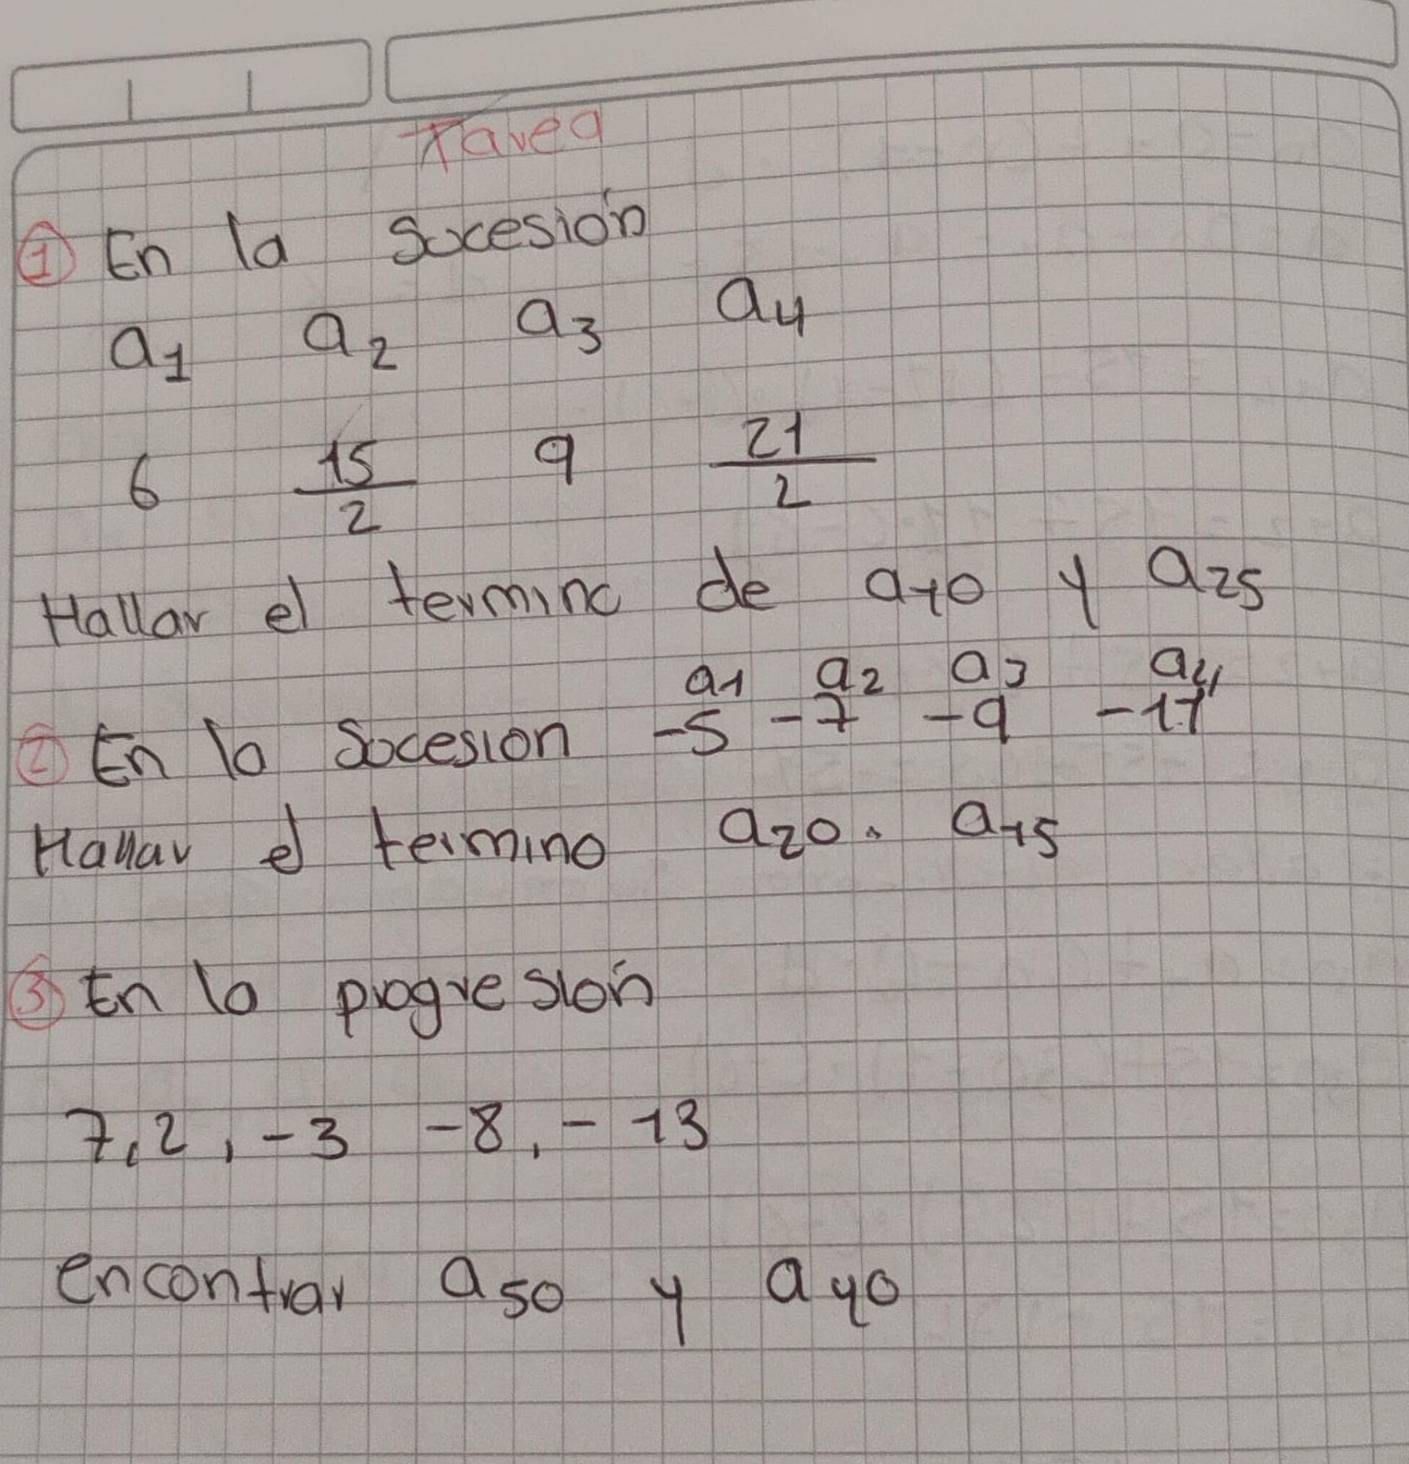 Tarea
① En la Sucesión
a1 a2 a3 a4
6 15/2 9 21/2
Hallar el termino de a10 y a25
a1 a2 a3 a4
② En la Sucesion -5 -7 -9 -11
Hallar el termino a20. a15
③ En la progresión
7, 2, -3 -8, -13
encontrar a50 y a40